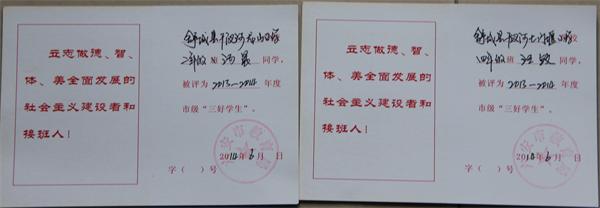 立志做德、智、
体、美全面发展的
社会主义建设者和
接班人！
舒城县
年级 班 同学，
被评为2013—2014年度
市级“三好学生”。
六安市教育局
2014年6月 日
字（ ）号
立志做德、智、
体、美全面发展的
社会主义建设者和
接班人！
舒城县
四年级 班 汪 同学，
被评为2013—2014年度
市级“三好学生”。
六安市教育局
2014年6月 日
字（ ）号